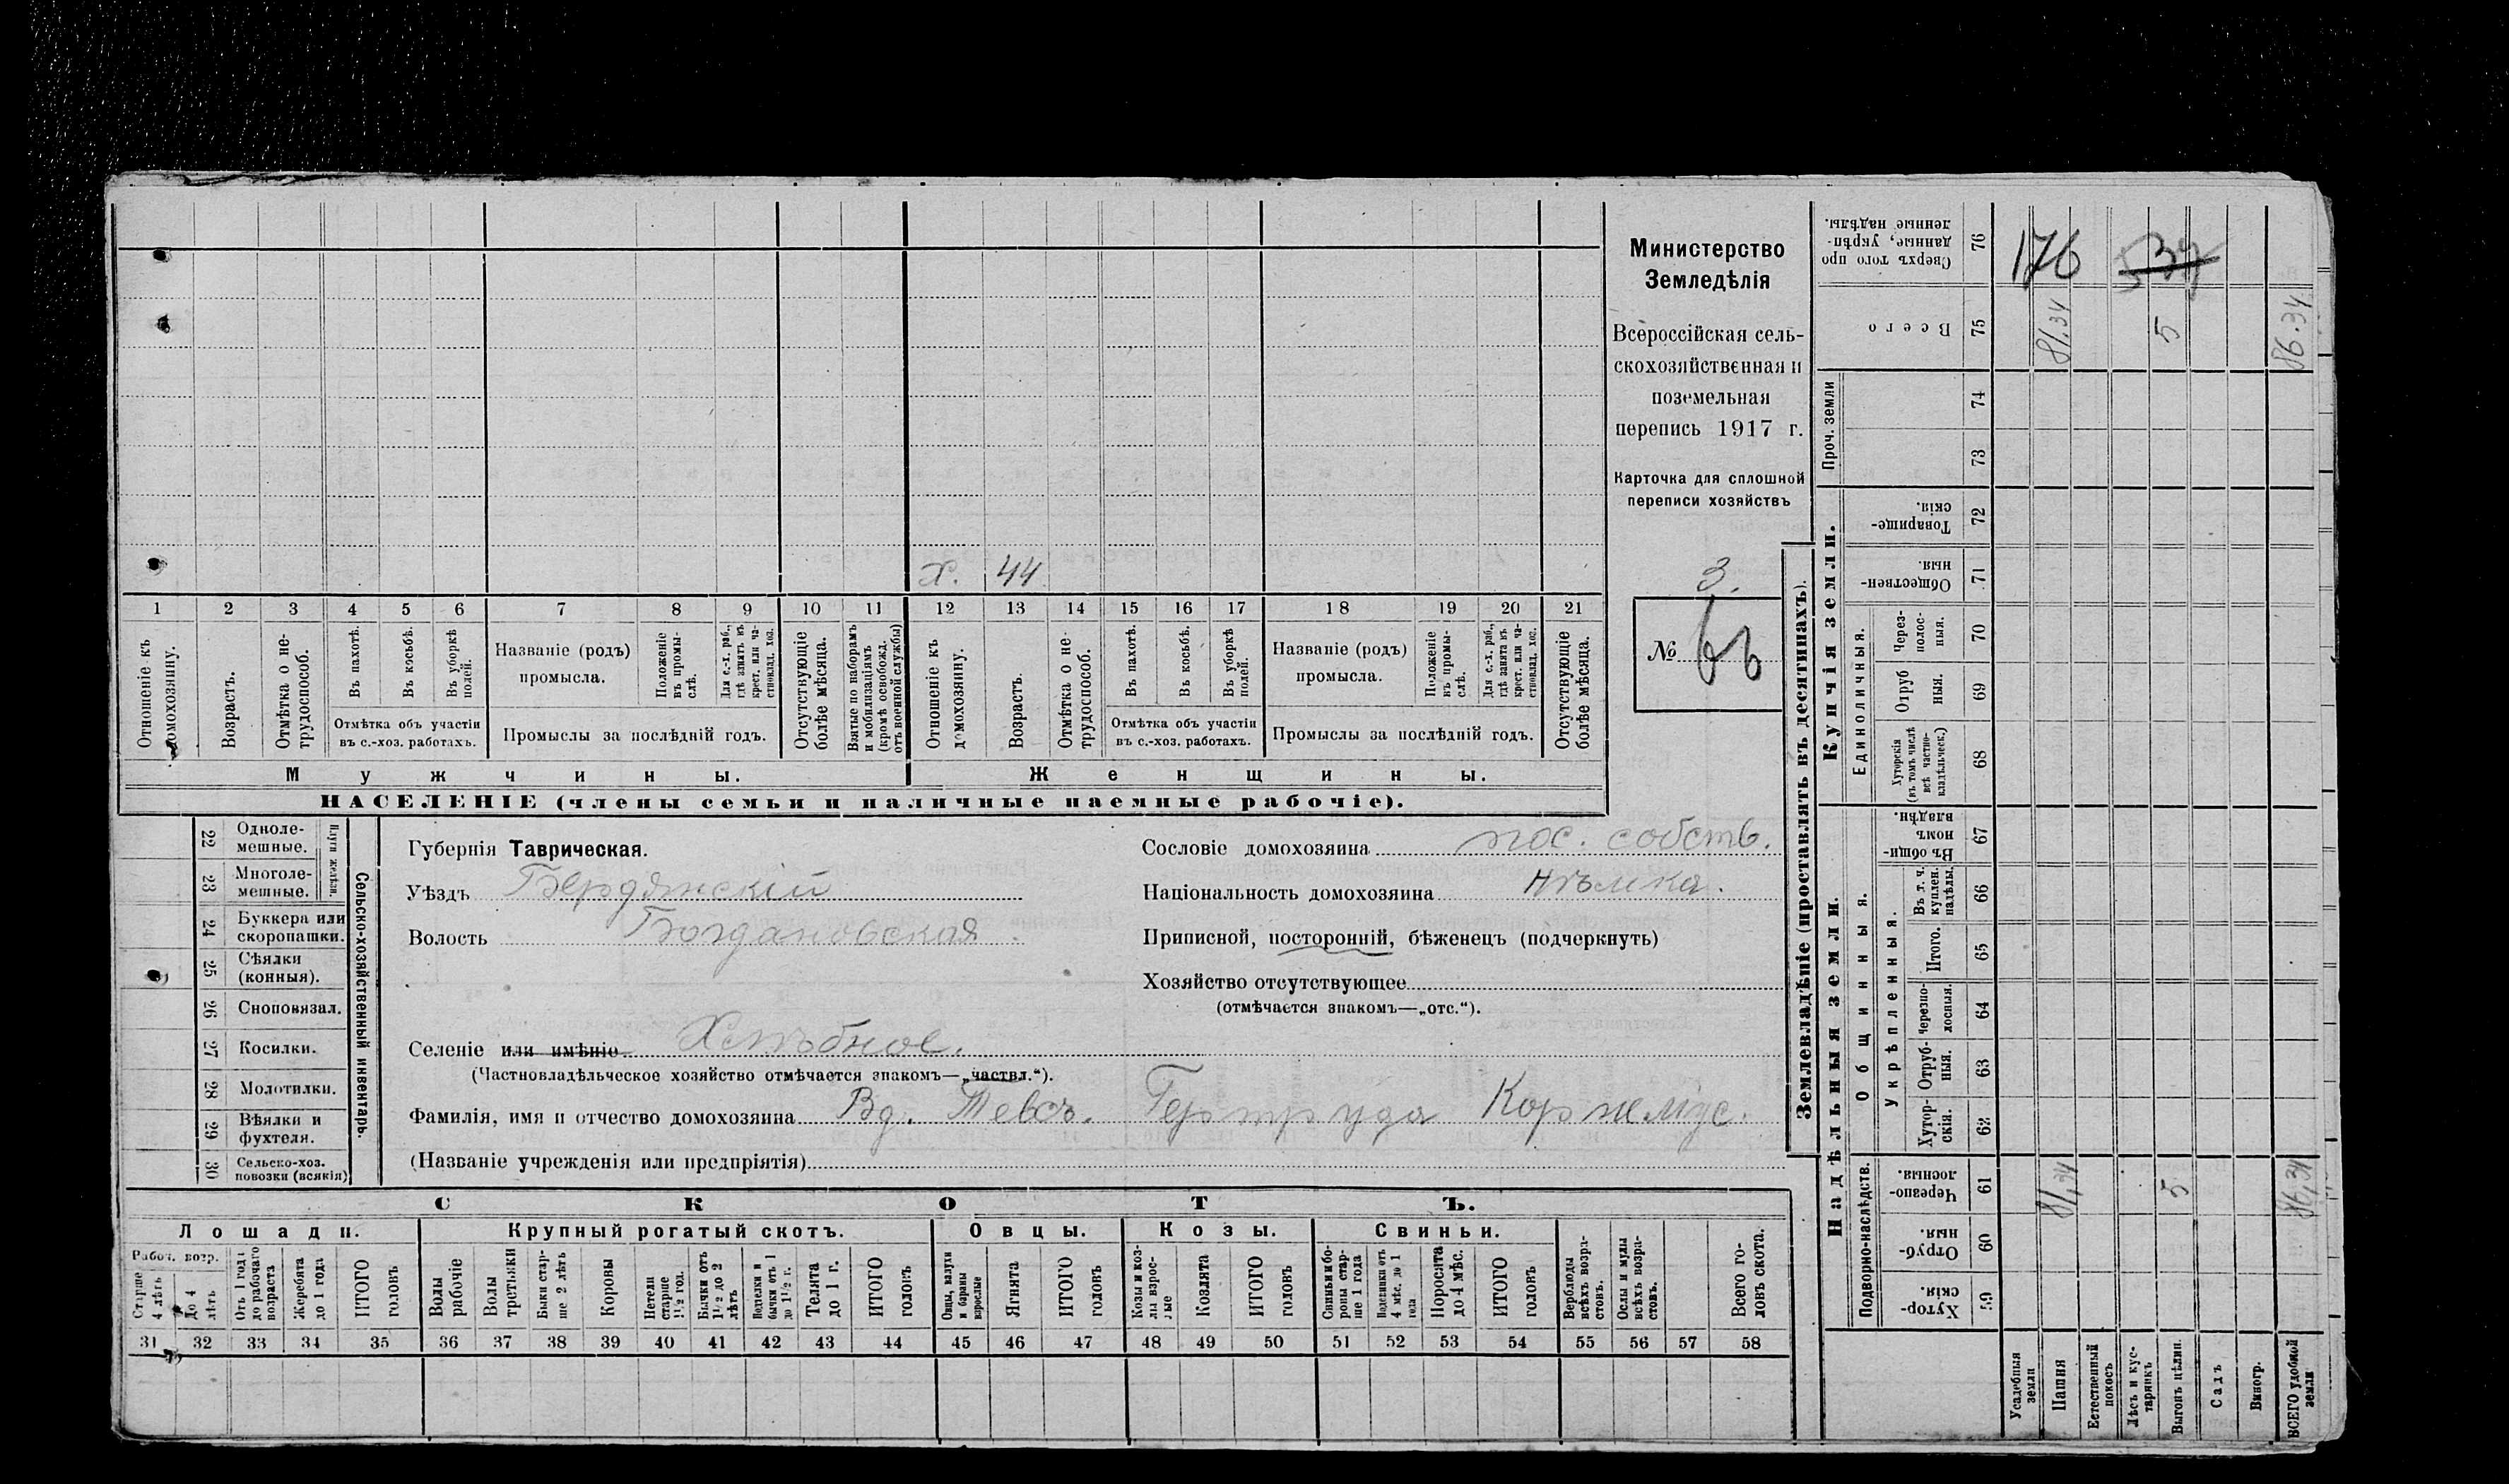 Министерство
Земледѣлія
Всероссійская сель-
скохозяйственная и
поземельная
перепись 1917 г.
Карточка для сплошной
переписи хозяйствъ
3.
№
Х. 44
1 2 3 4 5 6 7 8 9 10 11 12 13 14 15 16 17 18 19 20 21
Отношеніе къ домохозяину.
Возрастъ.
Отмѣтка о не-трудоспособ.
Въ пахотѣ.
Въ косьбѣ.
Въ уборкѣ полей.
Отмѣтка объ участіи
въ с.-хоз. работахъ.
Названіе (родъ)
промысла.
Положеніе въ промы-слѣ.
Для с.-х. раб., гдѣ занятъ въ крест. или ча-стновлад. хоз.
Промыслы за послѣдній годъ.
Отсутствующіе болѣе мѣсяца.
Взятые по наборамъ и мобилизаціямъ (кромѣ освобожд. отъ военной службы)
Отношеніе къ домохозяину.
Возрастъ.
Отмѣтка о не-трудоспособ.
Въ пахотѣ.
Въ косьбѣ.
Въ уборкѣ полей.
Отмѣтка объ участіи
въ с.-хоз. работахъ.
Названіе (родъ)
промысла.
Положеніе въ промы-слѣ.
Для с.-х. раб., гдѣ занята въ крест. или ча-стновлад. хоз.
Промыслы за послѣдній годъ.
Отсутствующіе болѣе мѣсяца.
Мужчины.
Женщины.
НАСЕЛЕНІЕ (члены семьи и наличные наемные рабочіе).
22 Одноле-мешные.
23 Многоле-мешные.
Плуги желѣзн.
24 Буккера или скоропашки.
25 Сѣялки (конныя).
26 Сноповязал.
27 Косилки.
28 Молотилки.
29 Вѣялки и фухтеля.
30 Сельско-хоз. повозки (всякія)
Сельско-хозяйственный инвентарь.
Губернія Таврическая.
Уѣздъ Бердянскій
Волость Богдановская
Селеніе или имѣніе Хлѣбное.
(Частновладѣльческое хозяйство отмѣчается знакомъ—„частвл.“).
Фамилія, имя и отчество домохозяина Вд. Тевсъ. Гертруда Корнеліус.
(Названіе учрежденія или предпріятія)
Сословіе домохозяина пос. собств.
Національность домохозяина нѣмка.
Приписной, посторонній, бѣженецъ (подчеркнуть)
Хозяйство отсутствующее
(отмѣчается знакомъ—„отс.“).
СКОТЪ.
Лошади. Крупный рогатый скотъ. Овцы. Козы. Свиньи.
Рабоч. возр.
Старше 4 лѣтъ
До 4 лѣтъ
Отъ 1 года до рабочаго возраста
Жеребята до 1 года
ИТОГО головъ
Волы рабочіе
Волы третьяки
Быки стар-ше 2 лѣтъ
Коровы
Нетели старше 1½ год.
Бычки отъ 1½ до 2 лѣтъ
Подтелки и бычки отъ 1 до 1½ г.
Телята до 1 г.
ИТОГО головъ
Овцы, валухи и бараны взрослые
Ягнята
ИТОГО головъ
Козы и коз-лы взрос-лые
Козлята
ИТОГО головъ
Свиньи и бо-ровы стар-ше 1 года
Подсвинки отъ 4 мѣс. до 1 года
Поросята до 4 мѣс.
ИТОГО головъ
Верблюды всѣхъ возра-стовъ.
Ослы и мулы всѣхъ возра-стовъ.
Всего го-ловъ скота.
31 32 33 34 35 36 37 38 39 40 41 42 43 44 45 46 47 48 49 50 51 52 53 54 55 56 57 58
Землевладѣніе (проставлять въ десятинахъ).
Надѣльныя земли.
Купчія земли.
Проч. земли
Подворно-наслѣдств.
Общинныя.
Укрѣпленныя.
Единоличныя.
Сверхъ того про данные, укрѣп-ленные надѣлы. 76 176 537
Всего 75 81,34 5 86.34
74
73
Товарище-скія. 72
Обществен-ныя. 71
Через-полос-ныя. 70
Отруб ныя. 69
Хуторскія (въ томъ числѣ всѣ частно-владѣльческ.) 68
Въ общи-номъ владѣн. 67
Въ т. ч. куплен. надѣлы. 66
Итого. 65
Черезпо-лосныя. 64
Отруб-ныя. 63
Хутор-скія. 62
Черезпо-лосныя 61 81,34 5 86,34
Отруб-ныя. 60
Хутор-скія. 59
Усадебныя земли
Пашня
Естественный покосъ
Лѣсъ и кус-тарникъ
Выгонъ цѣлин.
Садъ
Виногр.
ВСЕГО удобной земли